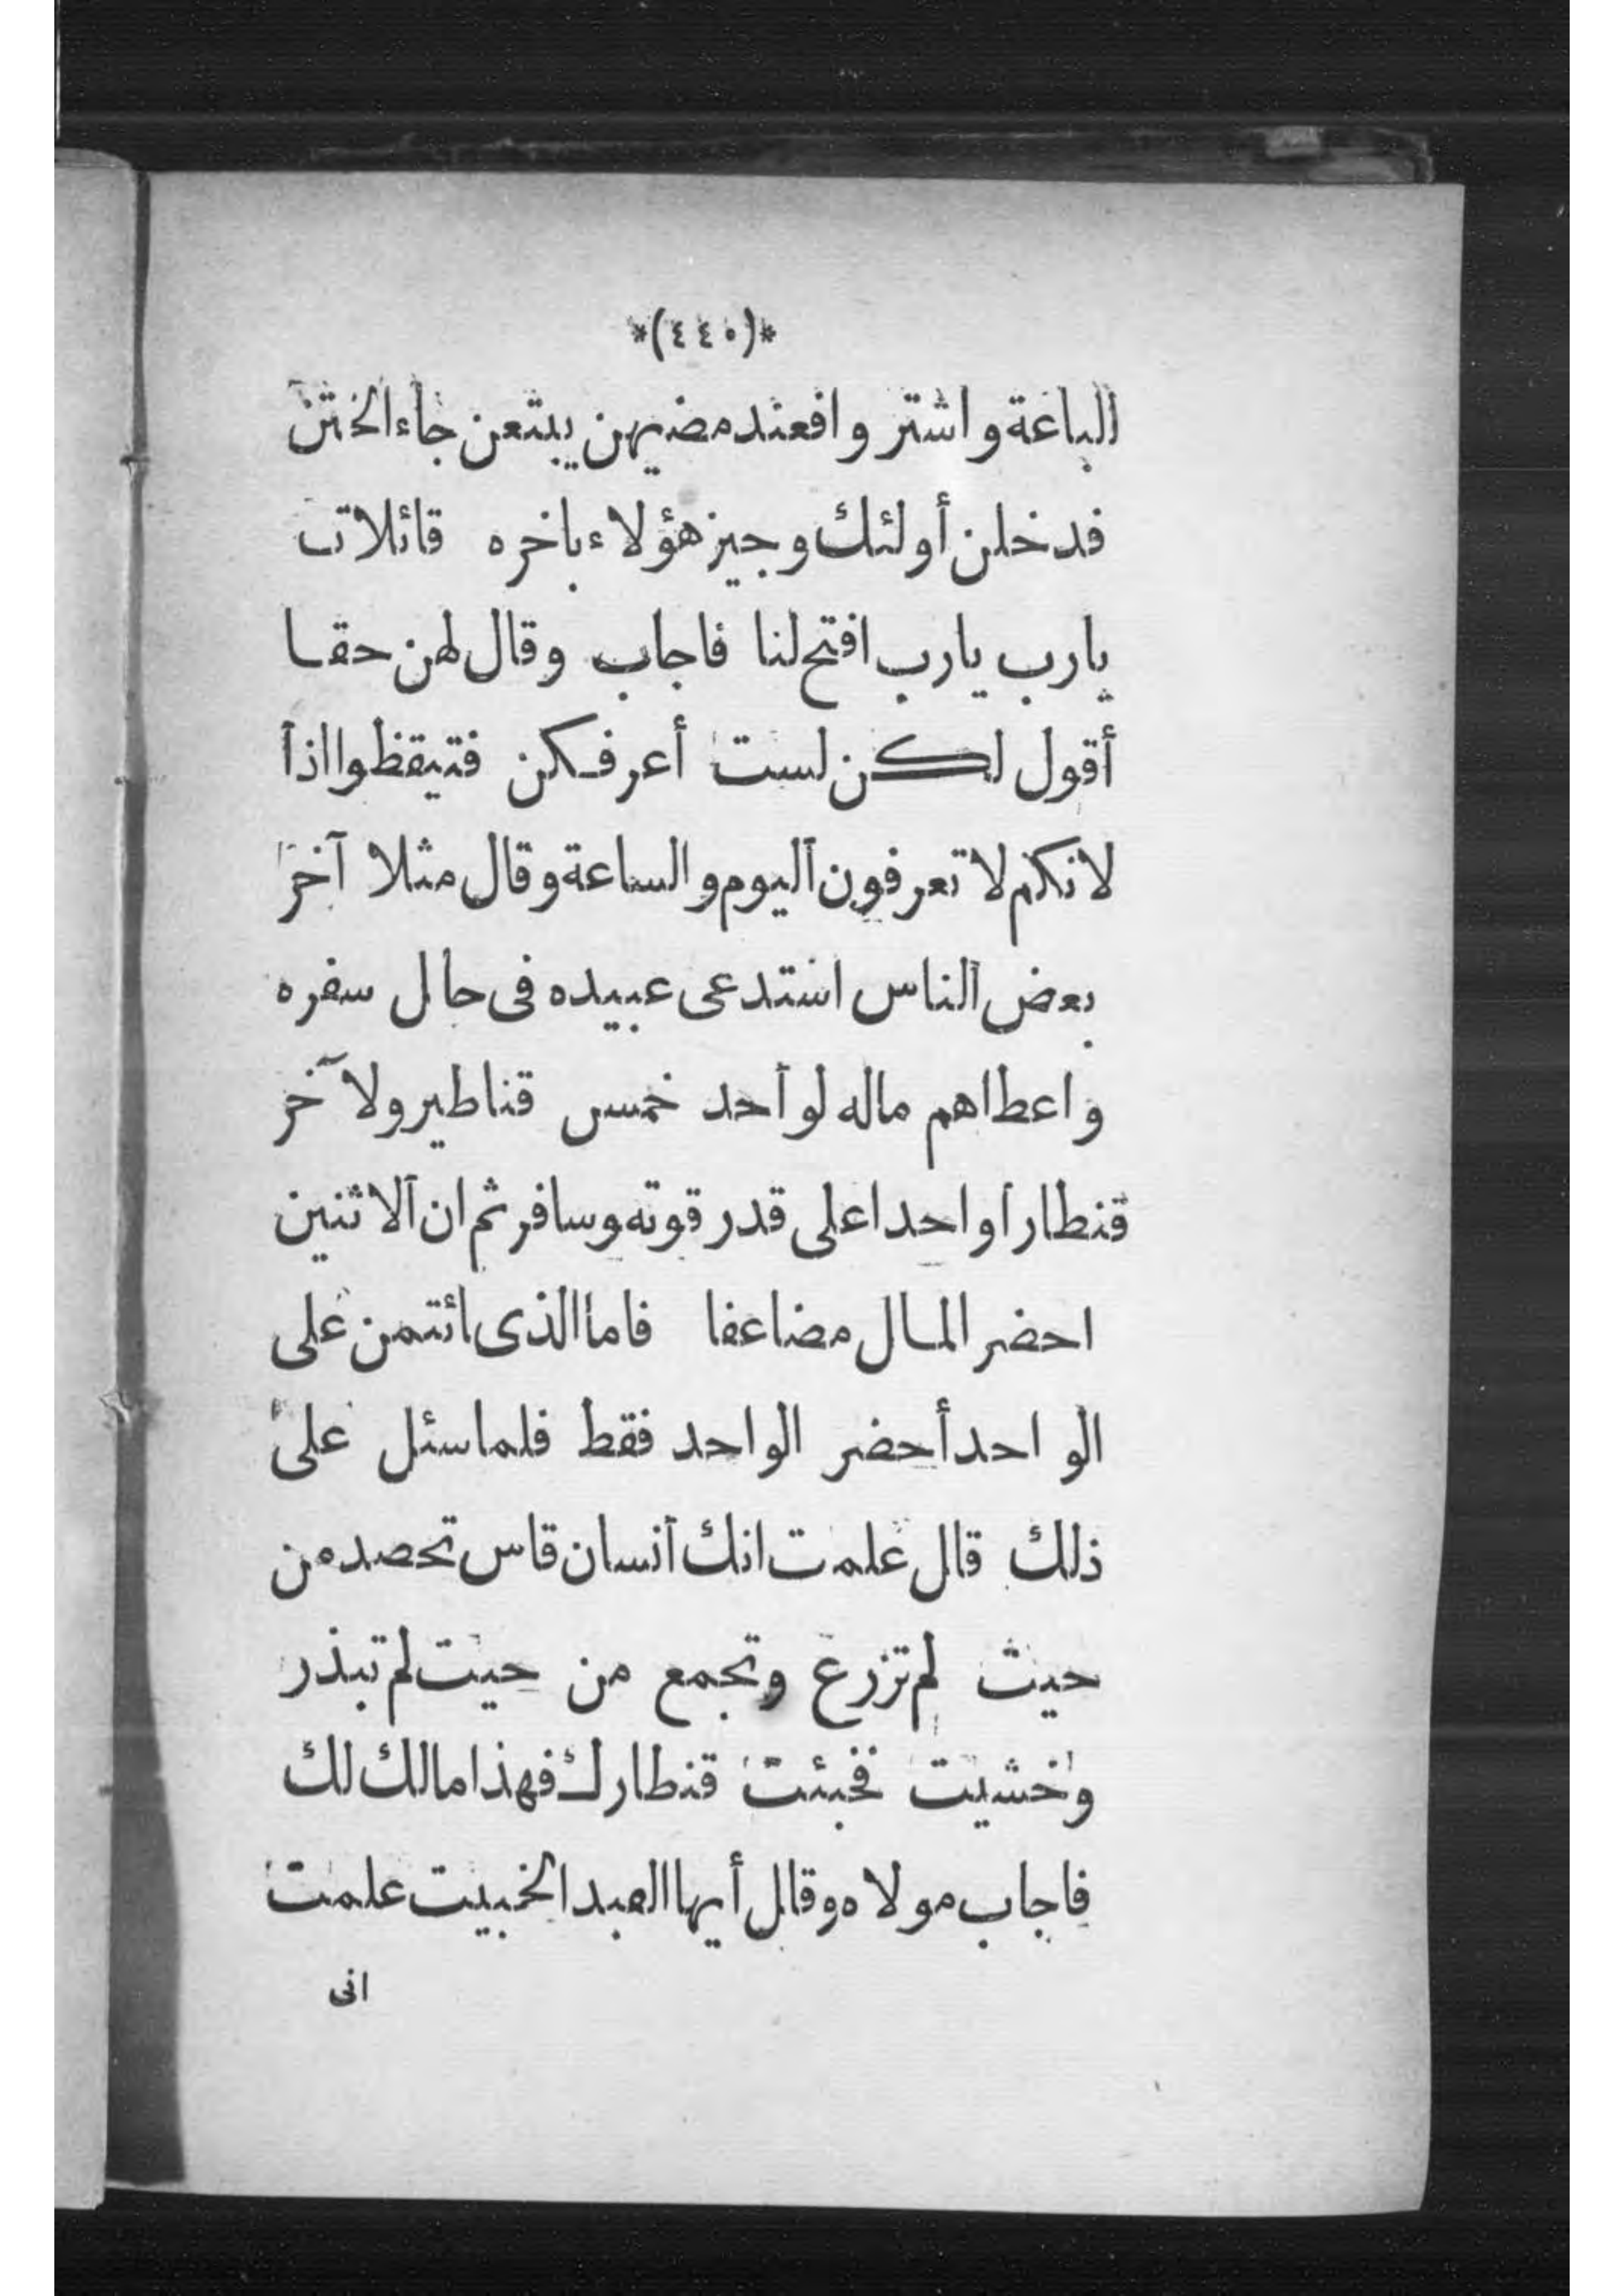 *(٤٤٠)*
الباعة واشتروا فعند مضيهن يبتعن جاء الختن
فدخلن أولئك وجيز هؤلاء باخره قائلات
يارب يارب افتح لنا فاجاب وقال لهن حقا
أقول لكن لست أعرفكن فتيقظوا اذا
لانكم لا تعرفون اليوم والساعة وقال مثلا آخر
بعض الناس استدعى عبيده فى حال سفره
واعطاهم ماله لواحد خمس قناطير ولآخر
قنطارا واحدا على قدر قوته وسافر ثم ان الاثنين
احضر المال مضاعفا فاما الذى ائتمن على
الواحد أحضر الواحد فقط فلما سئل على
ذلك قال علمت انك أنسان قاس تحصد من
حيث لم تزرع وتجمع من حيت لم تبذر
وخشيت فخبئت قنطارك فهذا مالك لك
فاجاب مولاه وقال أيها العبد الخبيت علمت
انى